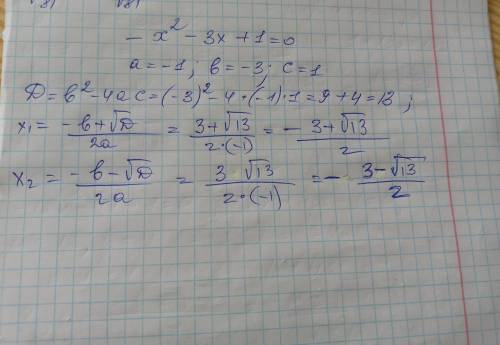 - x² - 3x + 1 = 0
a = -1; b = -3; c = 1
D = b² - 4ac = (-3)² - 4·(-1)·1 = 9 + 4 = 13;
x₁ = (-b + √D)/(2a) = (3 + √13)/(2·(-1)) = - (3 + √13)/2
x₂ = (-b - √D)/(2a) = (3 √13)/(2·(-1)) = - (3 - √13)/2